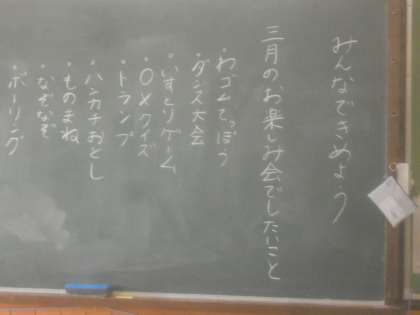 みんなできめよう
三月のお楽しみ会でしたいこと
・わゴムてっぽう
・ダンス大会
・いすとりゲーム
・〇×クイズ
・トランプ
・ハンカチおとし
・ものまね
・なぞなぞ
・ボーリング